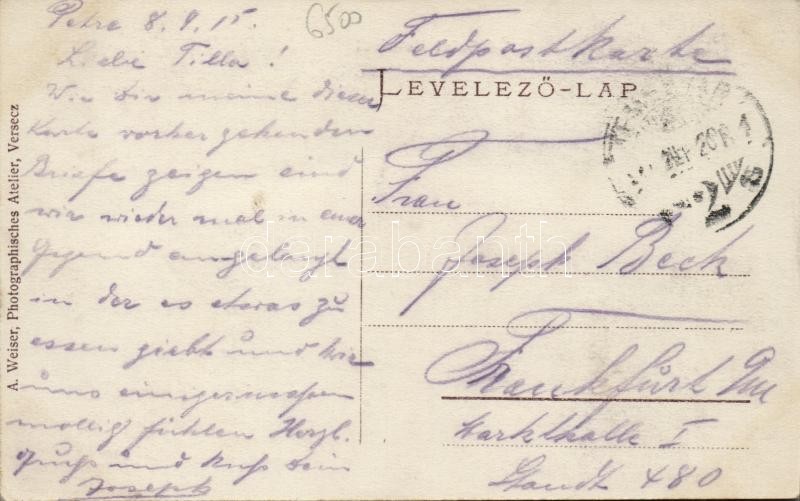 Petre 8.9.15.
6500
Liebe Tilla!
Wie dir meine dieser
Karte vorher gehenden
Briefe zeigen sind
wir wieder mal in einer
Gegend angelangt
in der es etwas zu
essen giebt und wir
uns einigermassen
mollig fühlen Herzl.
Gruss und Kuss Dein
Joseph
Feldpostkarte
LEVELEZŐ-LAP
Frau
Joseph Beck
Frankfurt
Markthalle I
Standt 480
A. Weiser, Photographisches Atelier, Versecz
darabanth